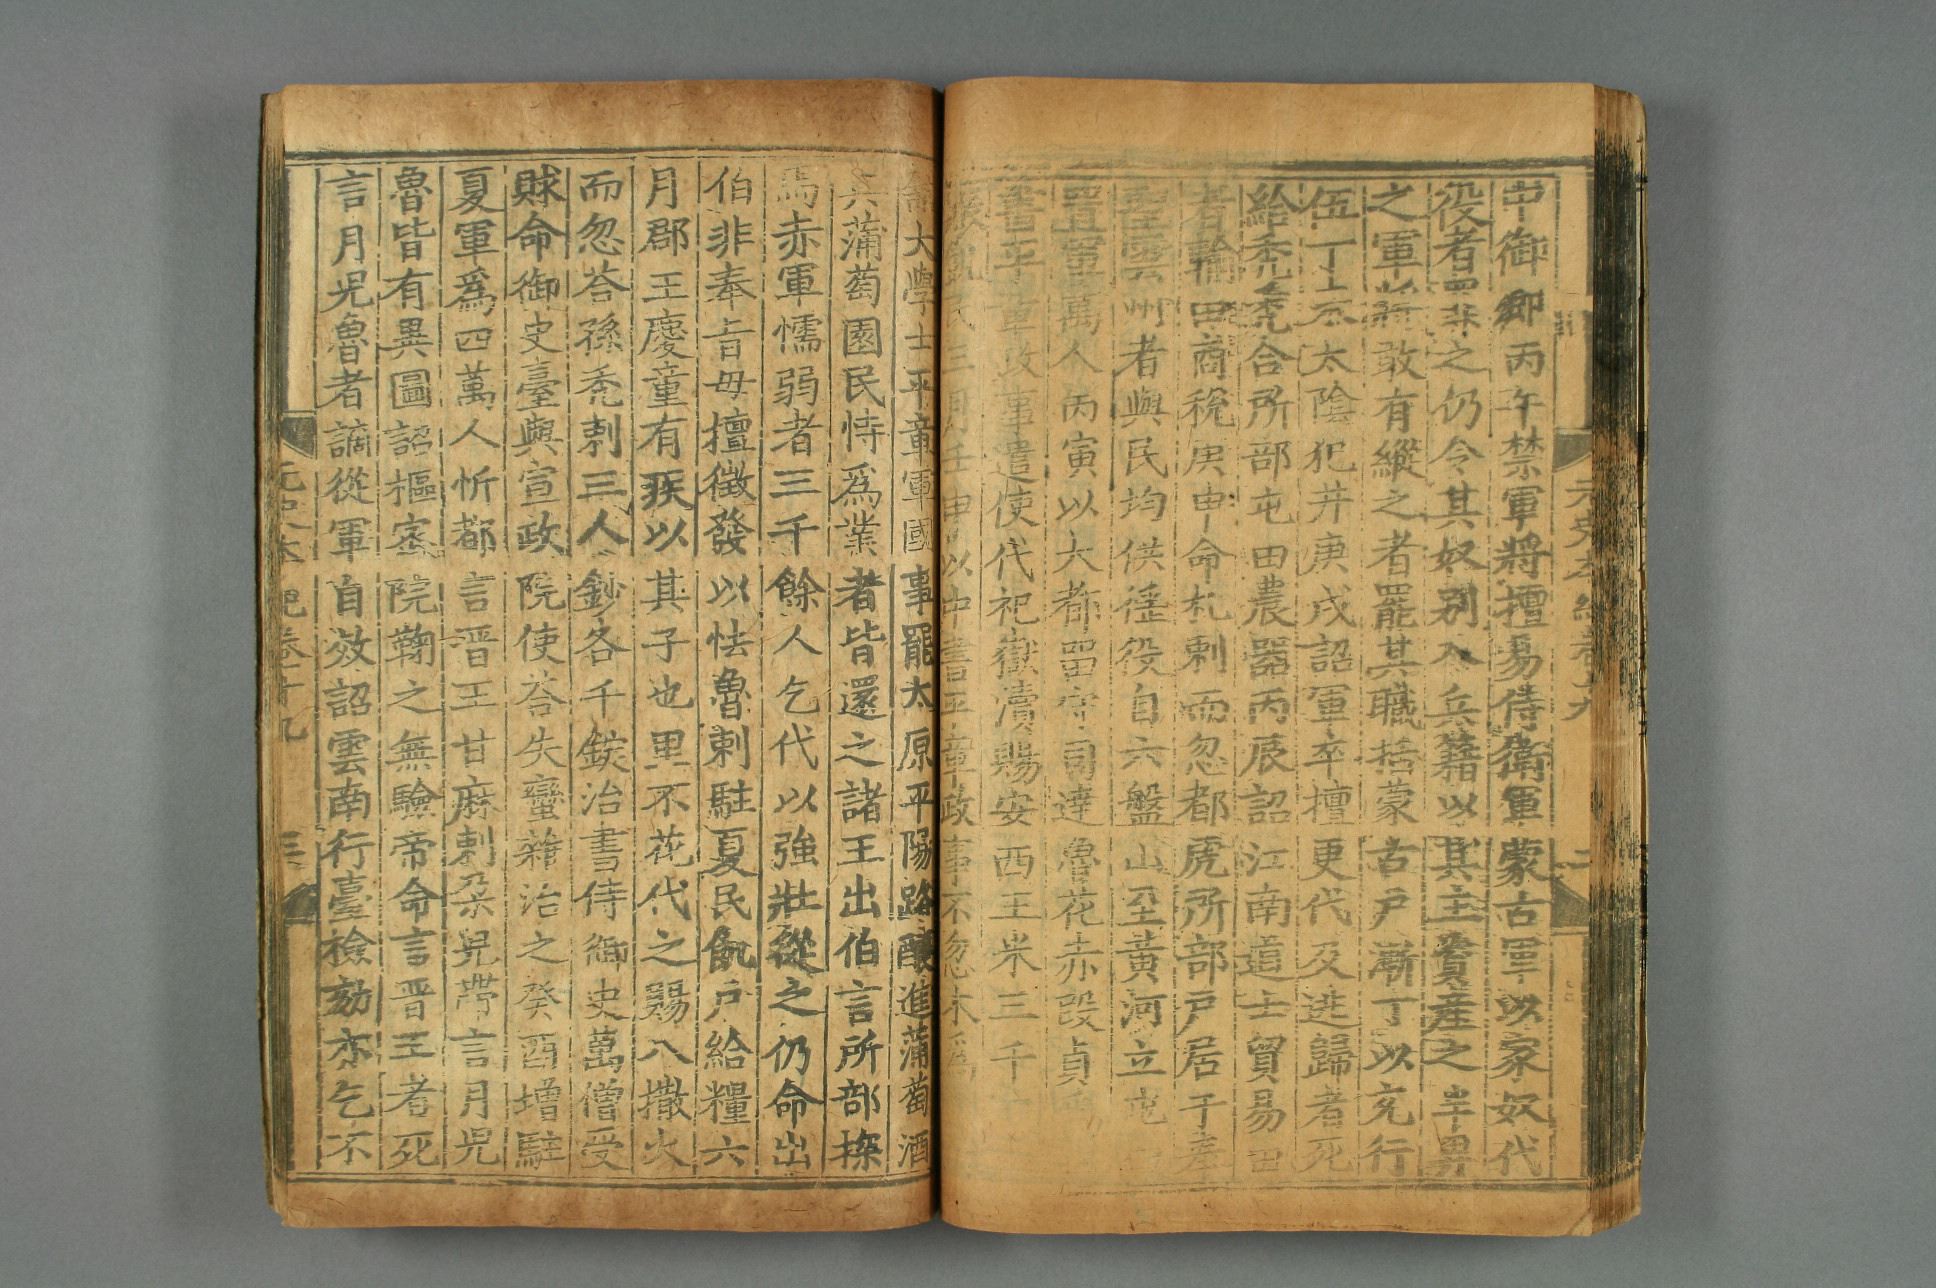 元史本紀卷十九 二
中御卿丙午禁軍將擅易侍衛軍蒙古軍以家奴代
役者罪之仍令其奴別入兵籍以其主資產之半畀
之軍將敢有縱之者罷其職括蒙古戶漸丁以充行
伍丁未太陰犯井庚戌詔軍卒擅更代及逃歸者死
給禿禿合所部屯田農器丙辰詔江南道士貿易田
者輸田商稅庚申命札剌而忽都虎所部戶居于奉
聖雲州者與民均供徭役自六盤山至黃河立屯
置軍萬人丙寅以大都留守司達魯花赤段貞爲
書平章政事遣使代祀嶽瀆賜安西王米三千石
賑飢民三月壬申以中書平章政事不忽木爲
大學士平章軍國事罷太原平陽路釀進蒲萄酒
其蒲萄園民恃爲業者皆還之諸王出伯言所部探
馬赤軍懦弱者三千餘人乞代以強壯從之仍命出
伯非奉旨毋擅徵發以怯魯剌駐夏民飢戶給糧六
月郡王慶童有疾以其子也里不花代之賜八撒火
而忽荅孫禿剌三人鈔各千錠治書侍御史萬僧受
賕命御史臺與宣政院使荅失蠻雜治之癸酉增駐
夏軍爲四萬人忻都言晉王甘麻剌朶兒帶言月兒
魯皆有異圖詔樞密院鞫之無驗帝命言晉王者死
言月兒魯者謫從軍自效詔雲南行臺檢劾亦乞不
元史本紀卷十九 三